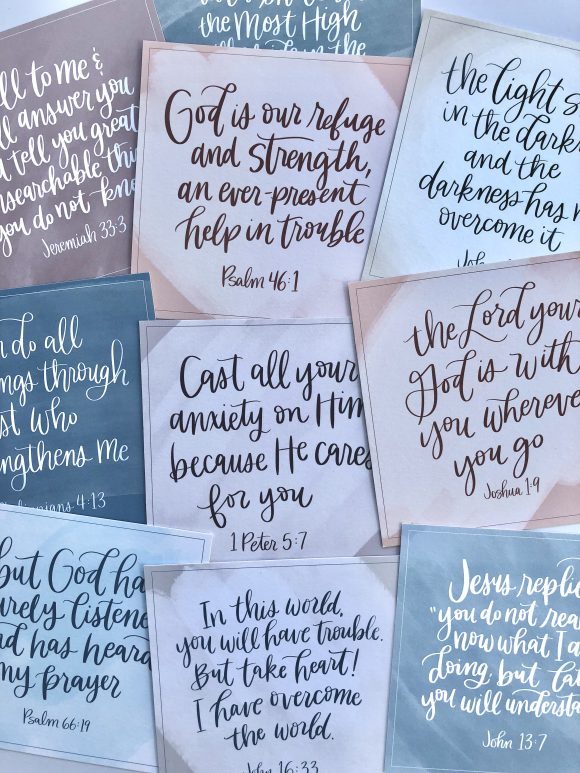 the Most High
in the
to me &
answer you
tell you great
you do not know
Jeremiah 33:3
God is our refuge
and strength,
an ever-present
help in trouble
Psalm 46:1
the light s
in the dark
and the
darkness has n
overcome it
John
do all
ings through
st who
engthens me
4:13
Cast all your
anxiety on Him
because He cares
for you
1 Peter 5:7
the Lord your
God is with
you whereve
you go
Joshua 1:9
but God ha
urely listene
nd has heard
my prayer
Psalm 66:19
In this world,
you will have trouble.
But take heart!
I have overcome
the world.
John 16:33
Jesus replie
"you do not rea
now what I a
doing but lat
you will understa
John 13:7